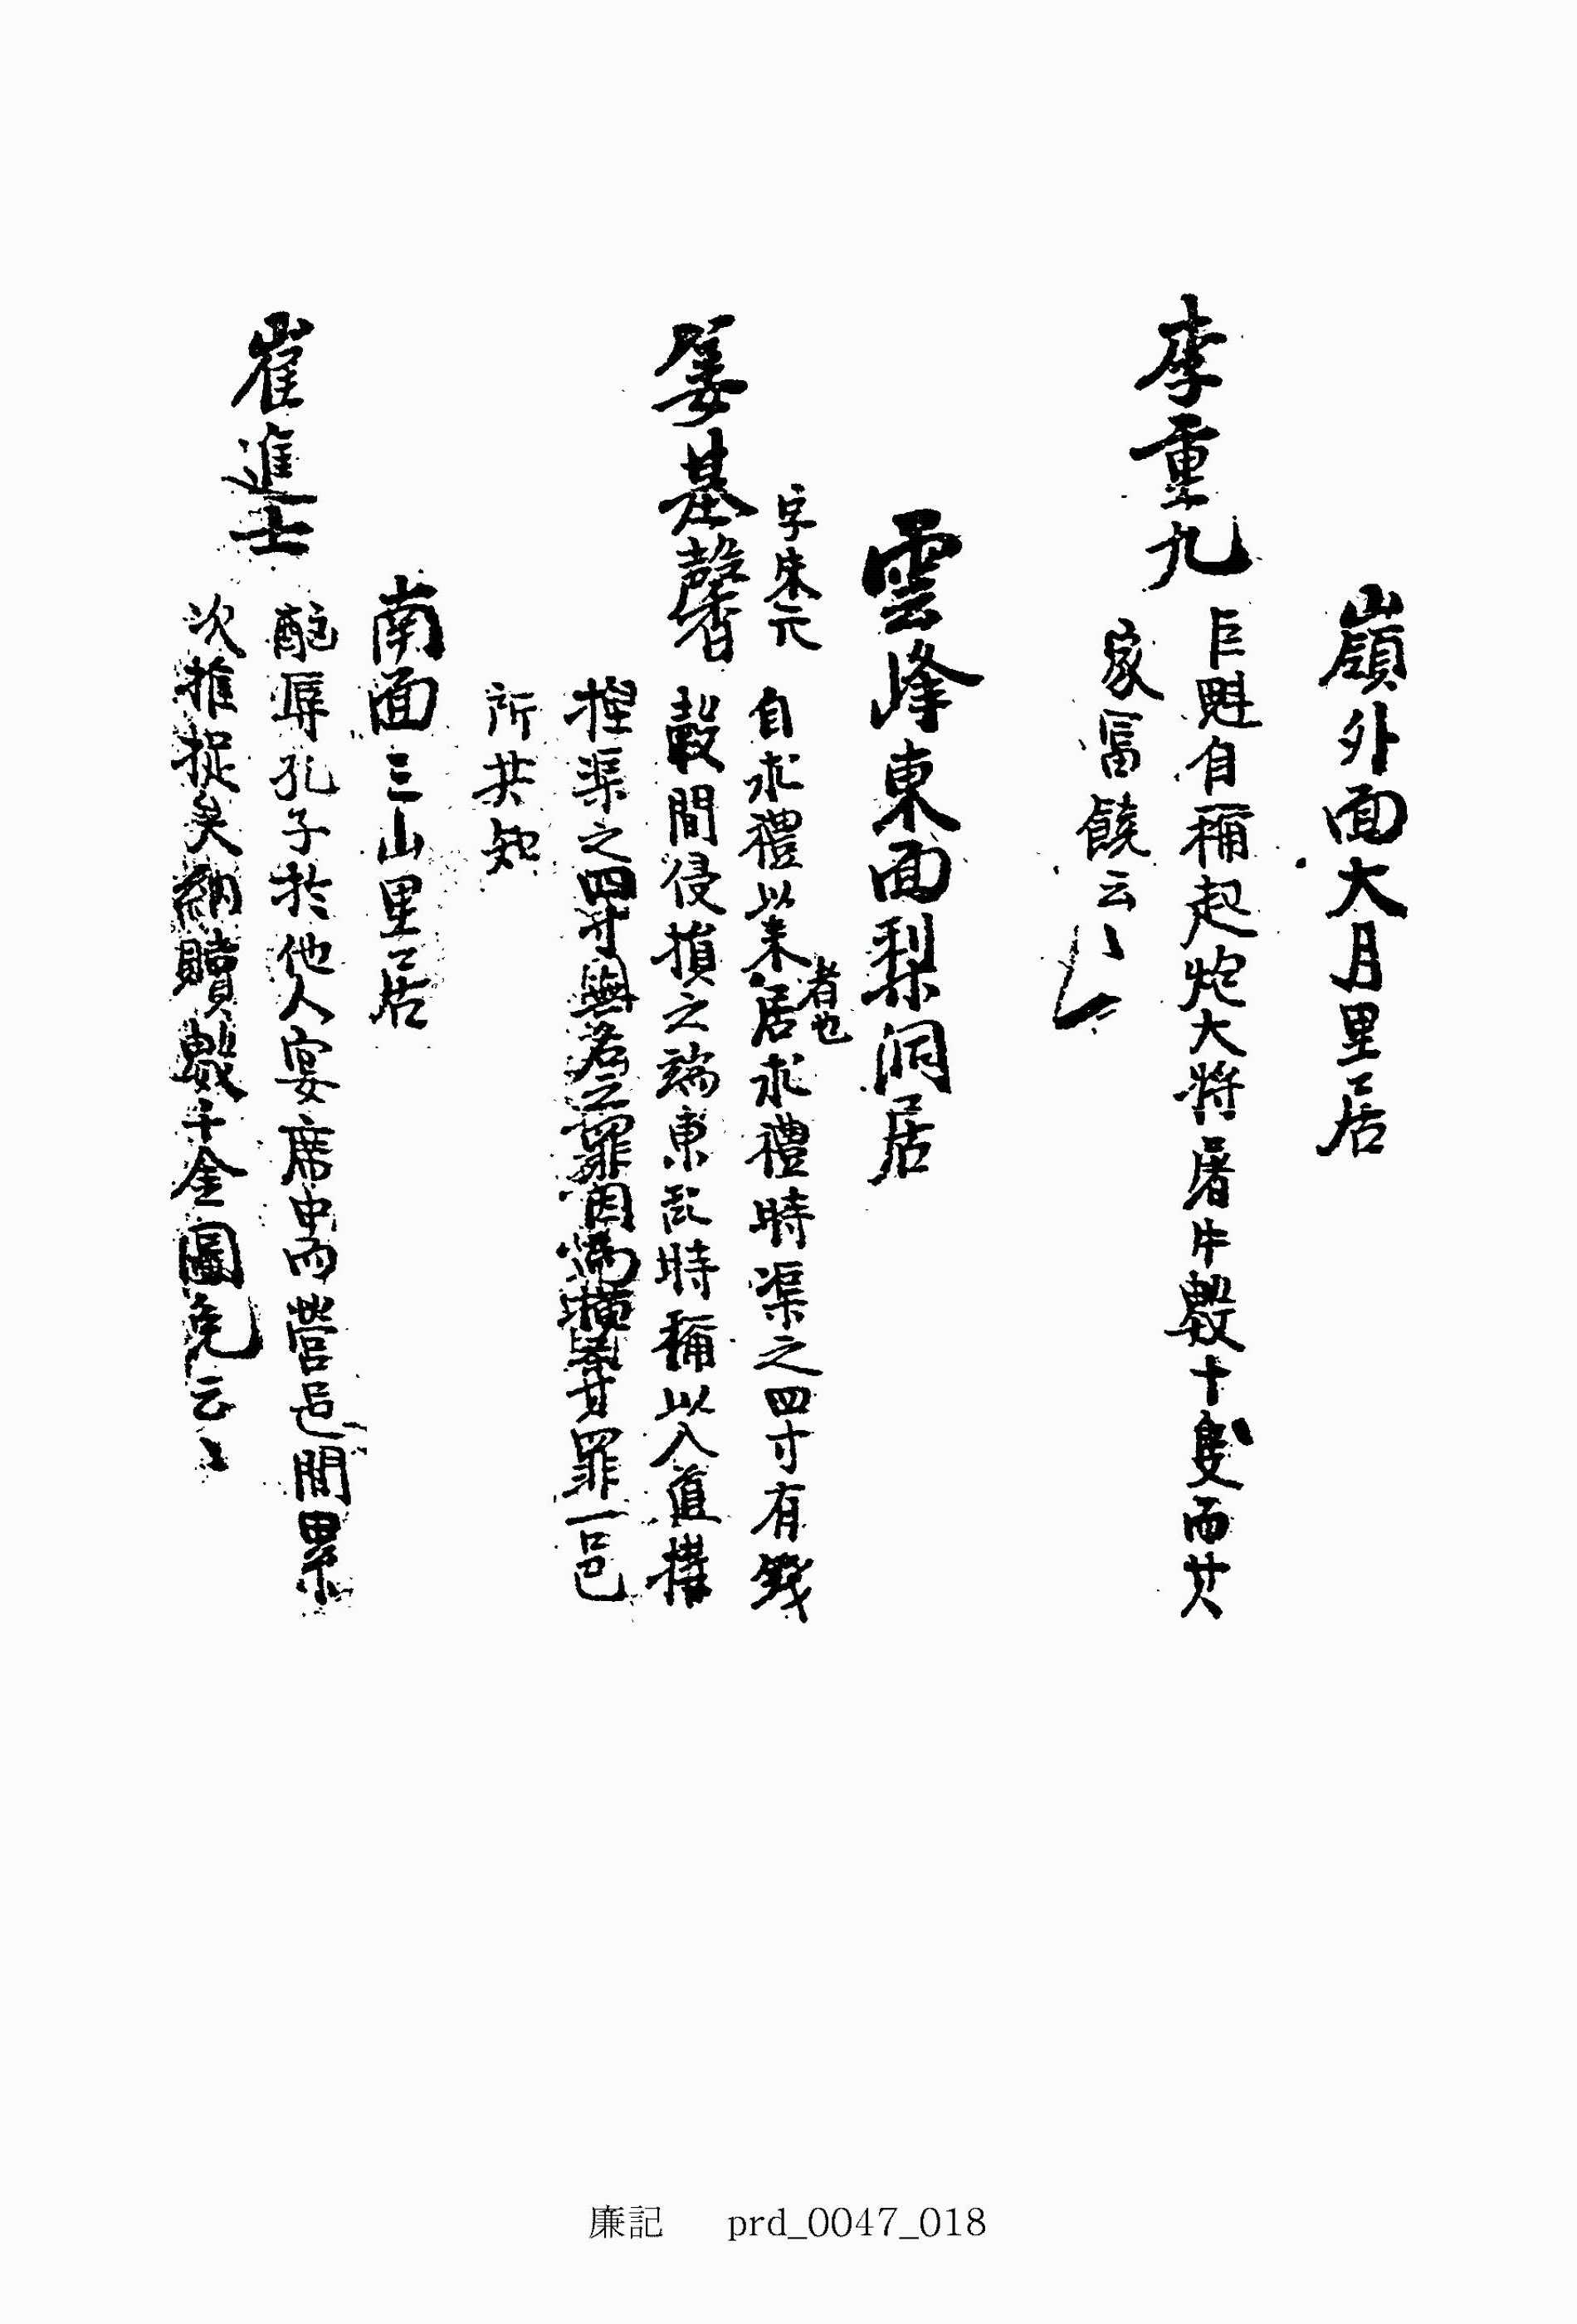 嶺外面大月里居
李重九
巨魁自稱起炮大將屠牛數十隻而其
家富饒云〻
雲峰東面梨洞居
字朱元
姜基馨
自求禮以來居者也求禮時渠之四寸有錢
穀間侵損之端東乱時稱以入道搆
捏渠之四寸無名之罪因爲橫 其罪一邑
所共知
南面三山里居
崔進士
醜辱孔子於他人宴席中而營邑間累
次推捉矣納贖數千金圖免云〻
廉記 prd_0047_018